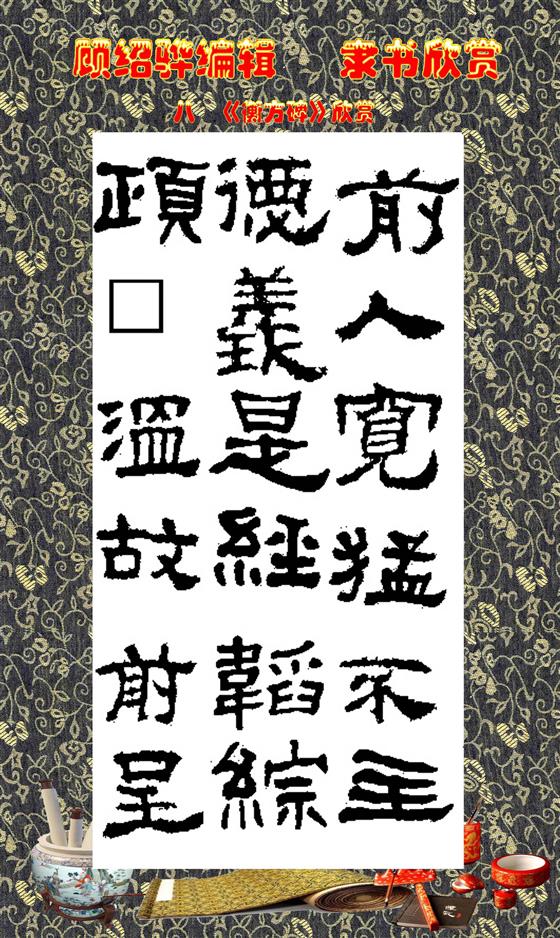 顾绍骅编辑 隶书欣赏
八 《衡方碑》欣赏
前人寬猛不主
德義是經韜綜
頙□溫故前呈